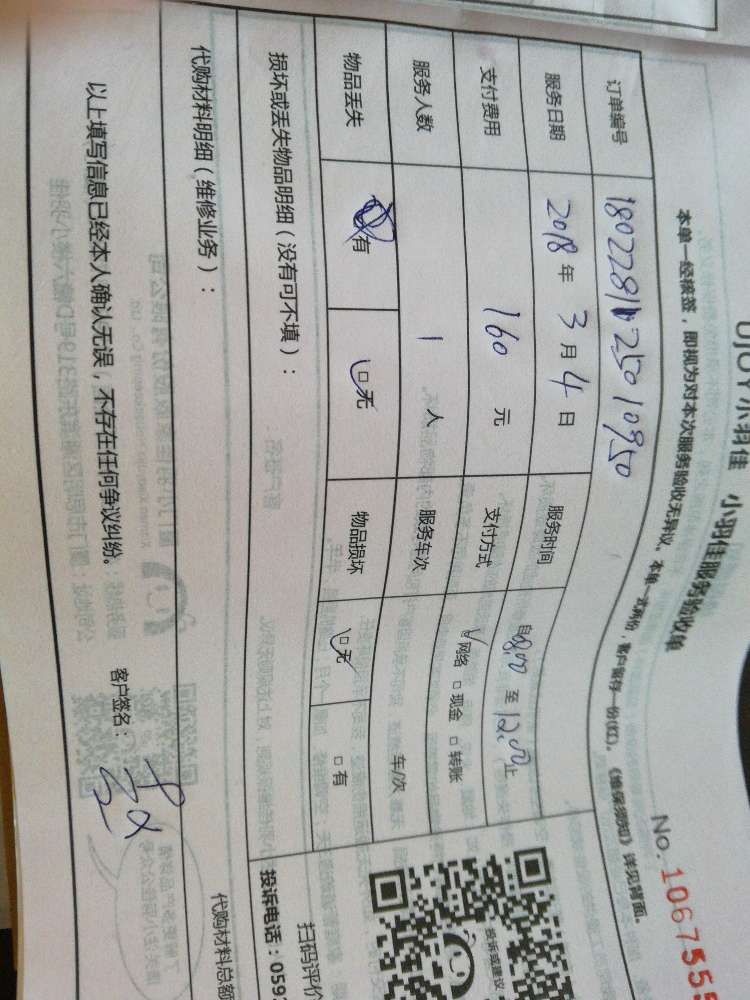 UJOY小羽佳 小羽佳服务验收单
No. 1067555
本单一经核签，即视为对本次服务验收无异议。本单一式两份，客户留存一份(红)。《维保须知》详见背面。
订单编号
服务日期 2018 年 3 月 4 日 服务时间 自 8:00 至 12:00 止
支付费用 160 元 支付方式 √网络 □现金 □转账
服务人数 1 人 服务车次 车/次
物品丢失 有 √□无 物品损坏 √□无 □有
损坏或丢失物品明细（没有可不填）：
代购材料明细（维修业务）：
代购材料总额
以上填写信息已经本人确认无误，不存在任何争议纠纷。 客户签名：
投诉或建议
扫码评价
投诉电话：059